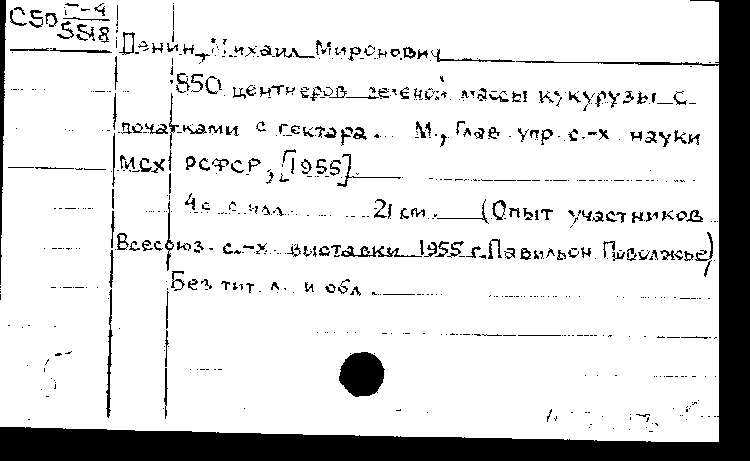 С50 Г-4
5518
Пенин, Михаил Миронович
850 центнеров зеленой массы кукурузы с
початками с гектара. М., Глав. упр. с.-х. науки
МСХ РСФСР, [1955].
4 с. с илл. 21 см. (Опыт участников
Всесоюз. с.-х. выставки 1955 г. Павильон Поволжье)
Без тит. л. и обл.